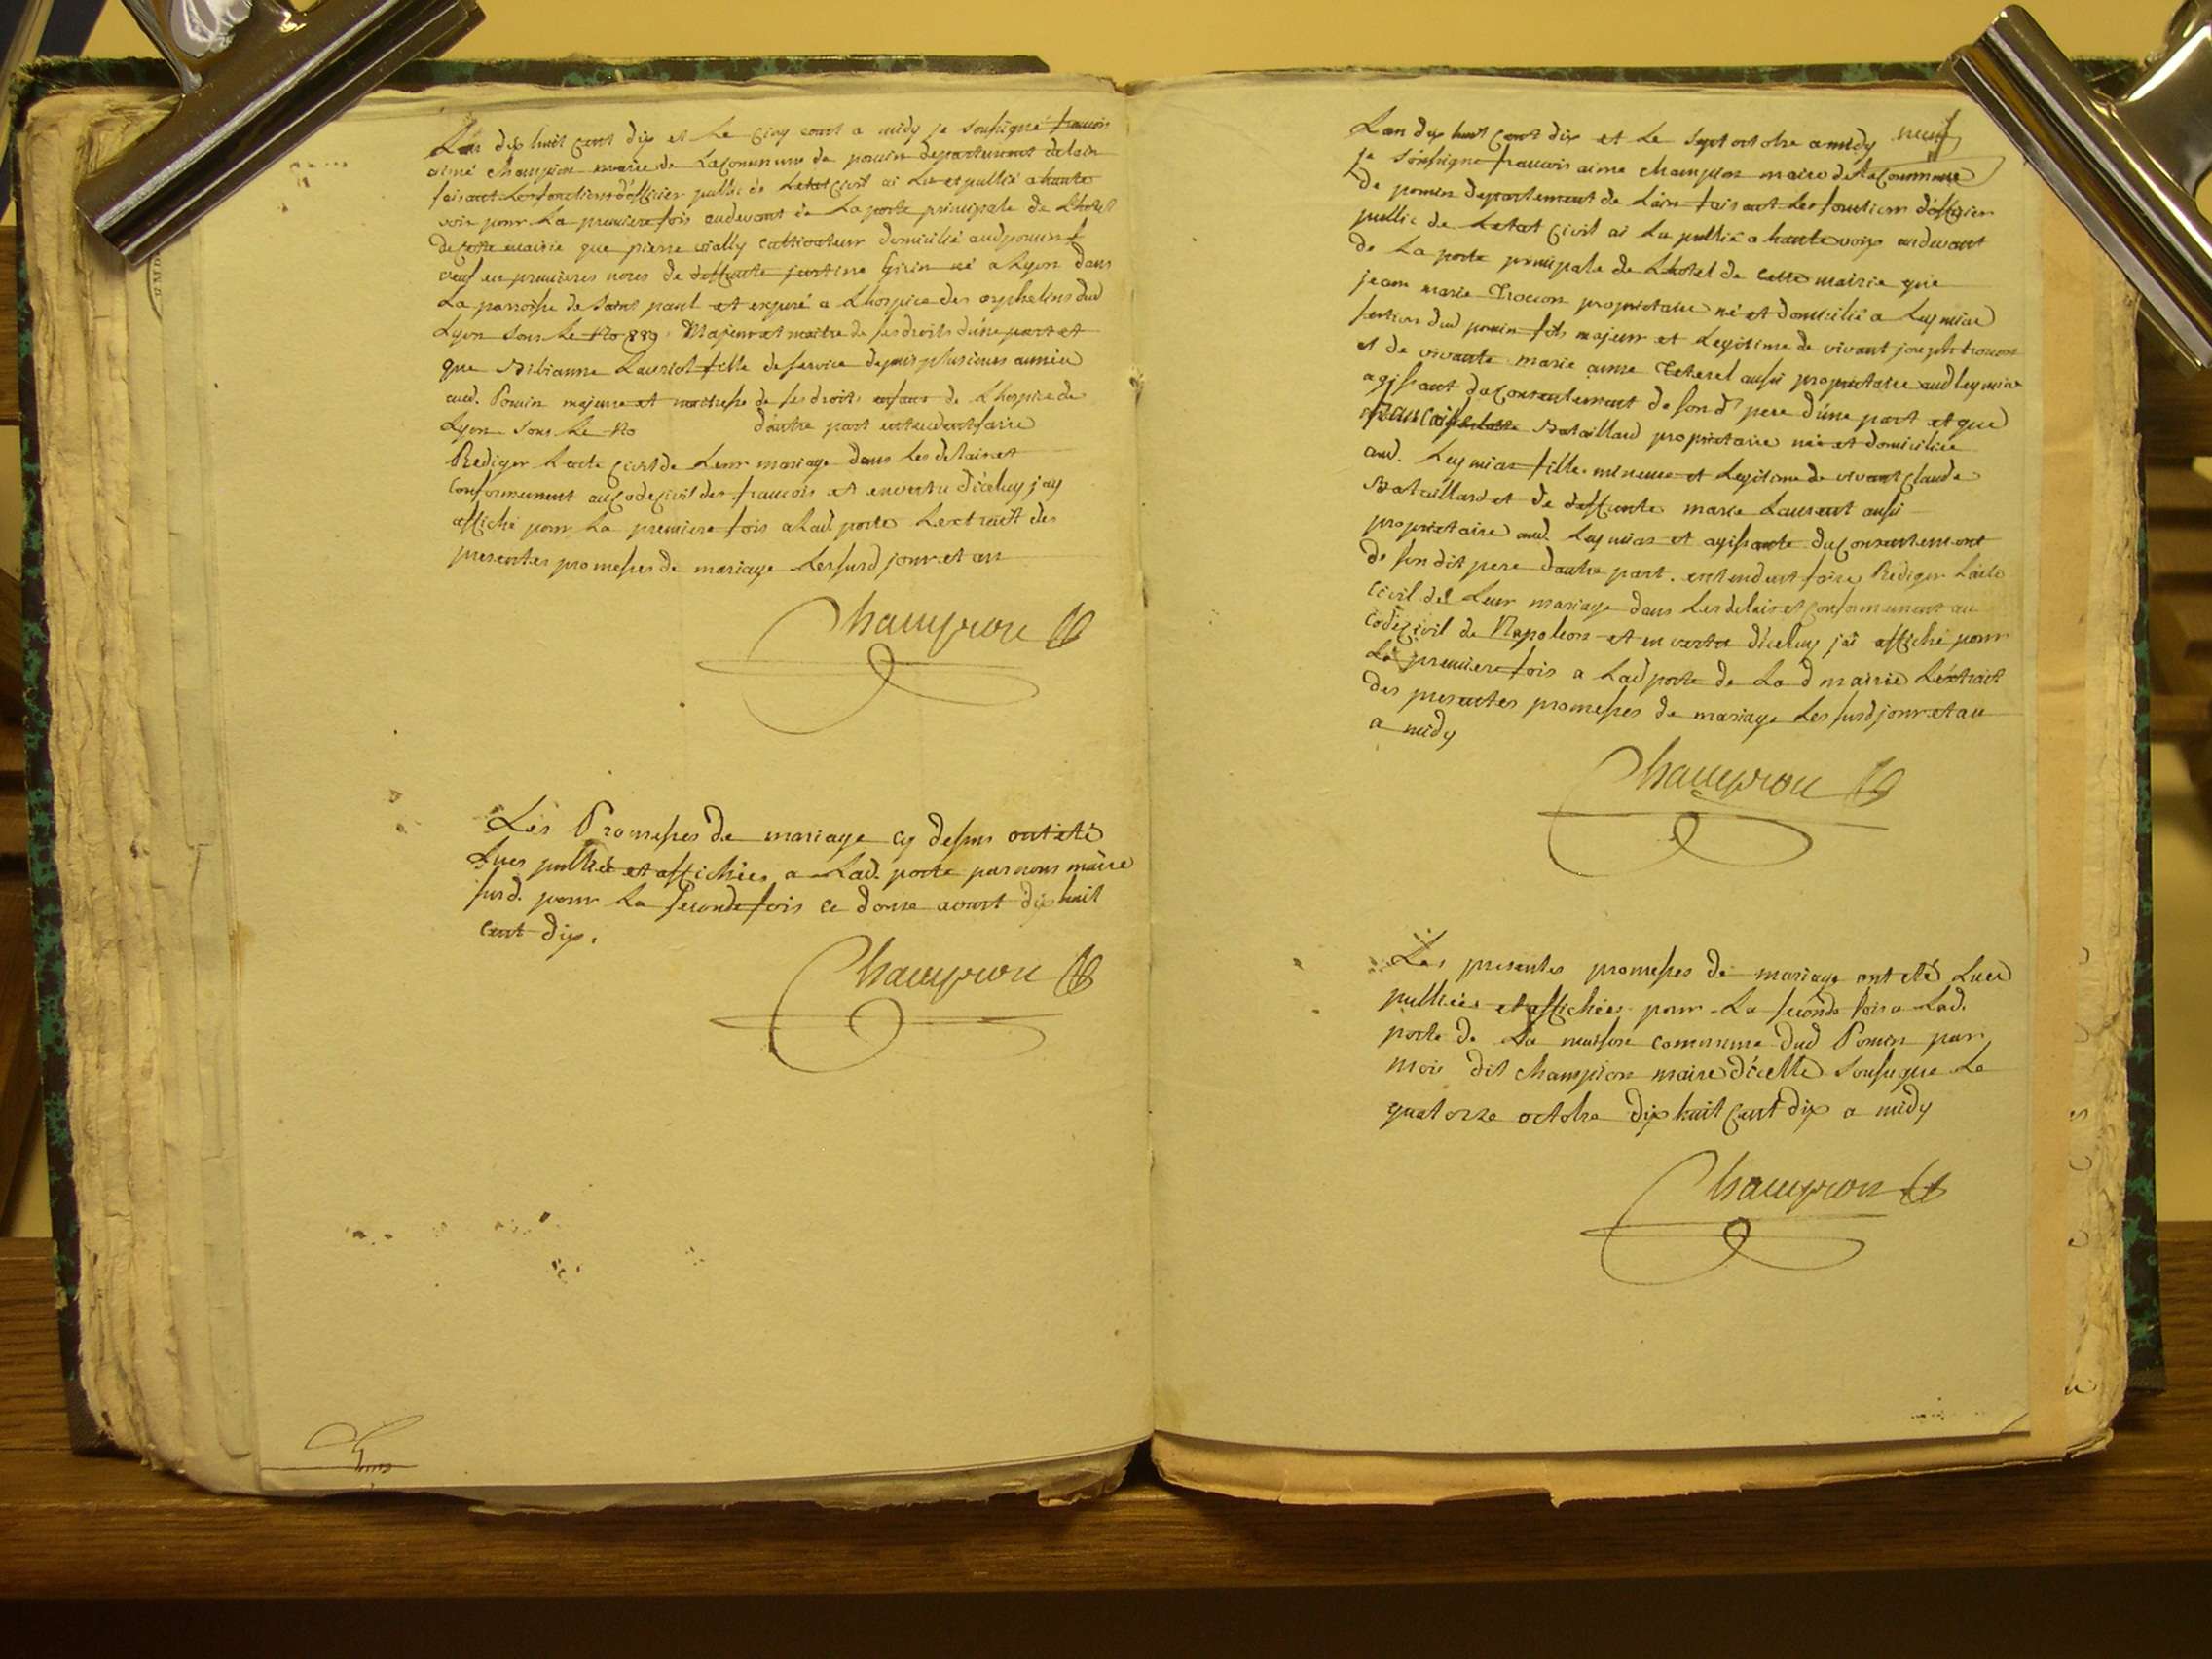 Lan dix huit cent dix et le cinq aout a midy je soussigné francois
aimé champion maire de la commune de poncin departement de lain
faisant les fonctions d'officier public de letat civil ai lu et publié a haute
voix pour la premiere fois audevant de la porte principale de l'hotel
de cette mairie que pierre vially cultivateur domicilié aud poncin
veuf en premieres noces de deffunte justine Girin né a Lyon dans
la parroisse de saint paul et exposé a l'hospice des orphelins dud
Lyon sous le No 889. Majeur et maitre de ses droits d'une part et
que Bibianne Lauriol fille de service depuis plusieurs année
aud. Poncin majeure et maitresse de ses droits enfant de l'hospice de
Lyon sous le No d'autre part entendent faire
Rediger lacte civil de leur mariage dans les delais et
conformement au code civil des francois et en vertu d'iceluy j'ay
affiché pour la premiere fois a lad. porte lextrait des
presentes promesses de mariage les susd jour et an
Champion
Les Promesses de mariage cy dessus ont été
lues publiée et affichées a lad. porte par nous maire
susd. pour la seconde fois ce douze aoust dix huit
cent dix.
Champion
neuf
Lan dix huit cent dix et le sept octobre a midy
je soussigne francois aime champion maire de la commune
de poncin departement de Lain faisant les fonctions d'officier
public de letat civil ai lu publié a haute voix audevant
de la porte principale de l'hotel de cette mairie que
jean marie trocon propriétaire né et domicilié a Leymiat
section dud poncin fils majeur et legitime de vivant joseph trocon
et de vivante marie anne aussi propriétaire aud leymiat
agissant du consentement de son d' pere d'une part et que
francoise Bataillard propriétaire née et domiciliée
aud. Leymiat fille mineure et legitime de vivant claude
Bataillard et de deffunte marie Laurent aussi
propriétaire aud. Leymiat et agissante du consentement
de son dit pere d'autre part. entendent faire Rediger lacte
civil de leur mariage dans les delais et conformement au
code civil de Napoleon et en vertu d'iceluy jai affiché pour
la premiere fois a lad porte de la d mairie l'extrait
des presentes promesses de mariage les susd jour et an
a midy
Champion
Les presentes promesses de mariage ont eté lues
publiées et affichées pour la seconde fois a lad.
porte de la maison commune dud Poncin par
moi dit champion maire d'icelle soussigne le
quatorze octobre dix huit cent dix a midy
Champion